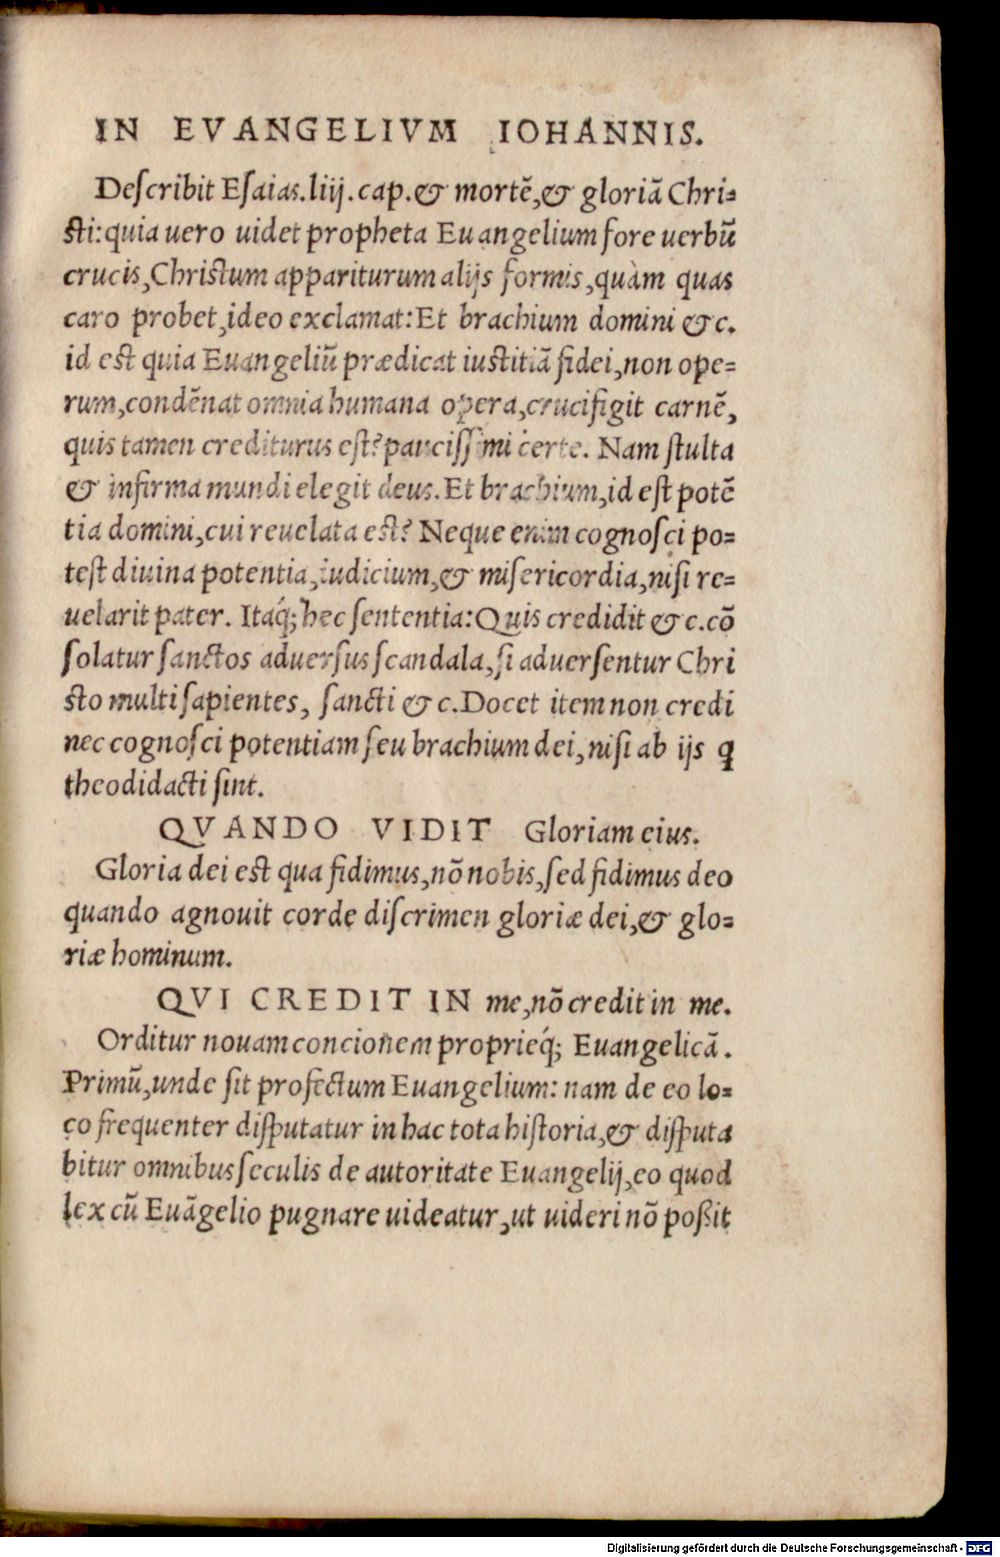 IN EVANGELIVM IOHANNIS.
Deſcribit Eſaias.liij.cap.& mortē,& gloriā Chri⸗
ſti:quia uero uidet propheta Euangelium fore uerbū
crucis,Chriſtum appariturum alijs formis,quàm quas
caro probet,ideo exclamat:Et brachium domini &c.
id eſt quia Euangeliū prædicat iuſtitiā fidei,non ope⸗
rum,condēnat omnia humana opera,crucifigit carnē,
quis tamen crediturus eſt?pauciſſimi certe. Nam ſtulta
& infirma mundi elegit deus.Et brachium,id eſt potē
tia domini,cui reuelata eſt? Neque enim cognoſci po⸗
teſt diuina potentia,iudicium,& miſericordia,niſi re⸗
uelarit pater. Itaq́;hec ſententia:Quis credidit &c.cō
ſolatur ſanctos aduerſus ſcandala,ſi aduerſentur Chri
ſto multi ſapientes, ſancti &c.Docet item non credi
nec cognoſci potentiam ſeu brachium dei,niſi ab ijs ꝗ
theodidacti ſint.
QVANDO VIDIT Gloriam eius.
Gloria dei eſt qua fidimus,nō nobis,ſed fidimus deo
quando agnouit corde diſcrimen gloriæ dei,& glo⸗
riæ hominum.
QVI CREDIT IN me,nō credit in me.
Orditur nouam concionem proprieq́; Euangelicā.
Primū,unde ſit profectum Euangelium: nam de eo lo⸗
co frequenter diſputatur in hac tota hiſtoria,& diſputa
bitur omnibus ſeculis de autoritate Euangelij,eo quod
lex cū Euāgelio pugnare uideatur,ut uideri nō poßit
Digitalisierung gefördert durch die Deutsche Forschungsgemeinschaft - DFG